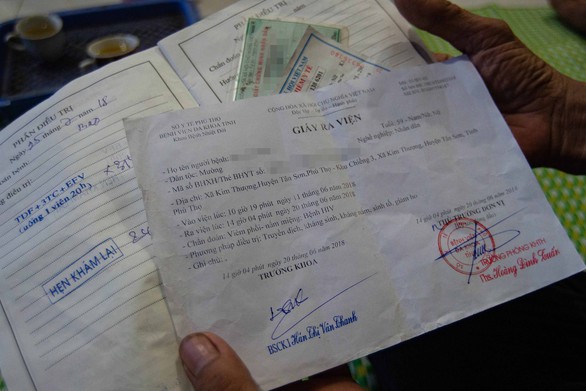 PHẦN ĐIỀU TRỊ
Ngày 23 tháng
TDF + 3TC + EFV
(uống 1 viên 20h)
HẸN KHÁM LẠI
SỞ Y TẾ PHÚ THỌ
BỆNH VIỆN ĐA KHOA TỈNH
Khoa Bệnh Nhiệt Đới
CỘNG HÒA XÃ HỘI CHỦ NGHĨA VIỆT NAM
GIẤY RA VIỆN
- Họ tên người bệnh:
Dân tộc: Mường
Nghề nghiệp: Nhân dân
- Mã số BHXH/Thẻ BHYT số:
- Địa chỉ: Xã Kim Thượng, Huyện Tân Sơn, Phú Thọ - Xóm Chiềng 3, Xã Kim Thượng, Huyện Tân Sơn, Tỉnh
Phú Thọ
- Vào viện lúc: 10 giờ 19 phút ngày 11 tháng 06 năm 2018
- Ra viện lúc: 14 giờ 04 phút ngày 20 tháng 06 năm 2018
- Chẩn đoán: Viêm phổi- nấm miệng. Bệnh HIV
- Phương pháp điều trị: Truyền dịch, kháng sinh, kháng nấm, sinh tố, giảm ho
- Ghi chú:
14 giờ 04 phút ngày 20 tháng 06 năm 2018
TRƯỞNG KHOA
BSCKI Hán Thị Vân Thanh
THỦ TRƯỞNG ĐƠN VỊ
TRƯỞNG PHÒNG KHTH
Ths. Hoàng Đình Tuấn